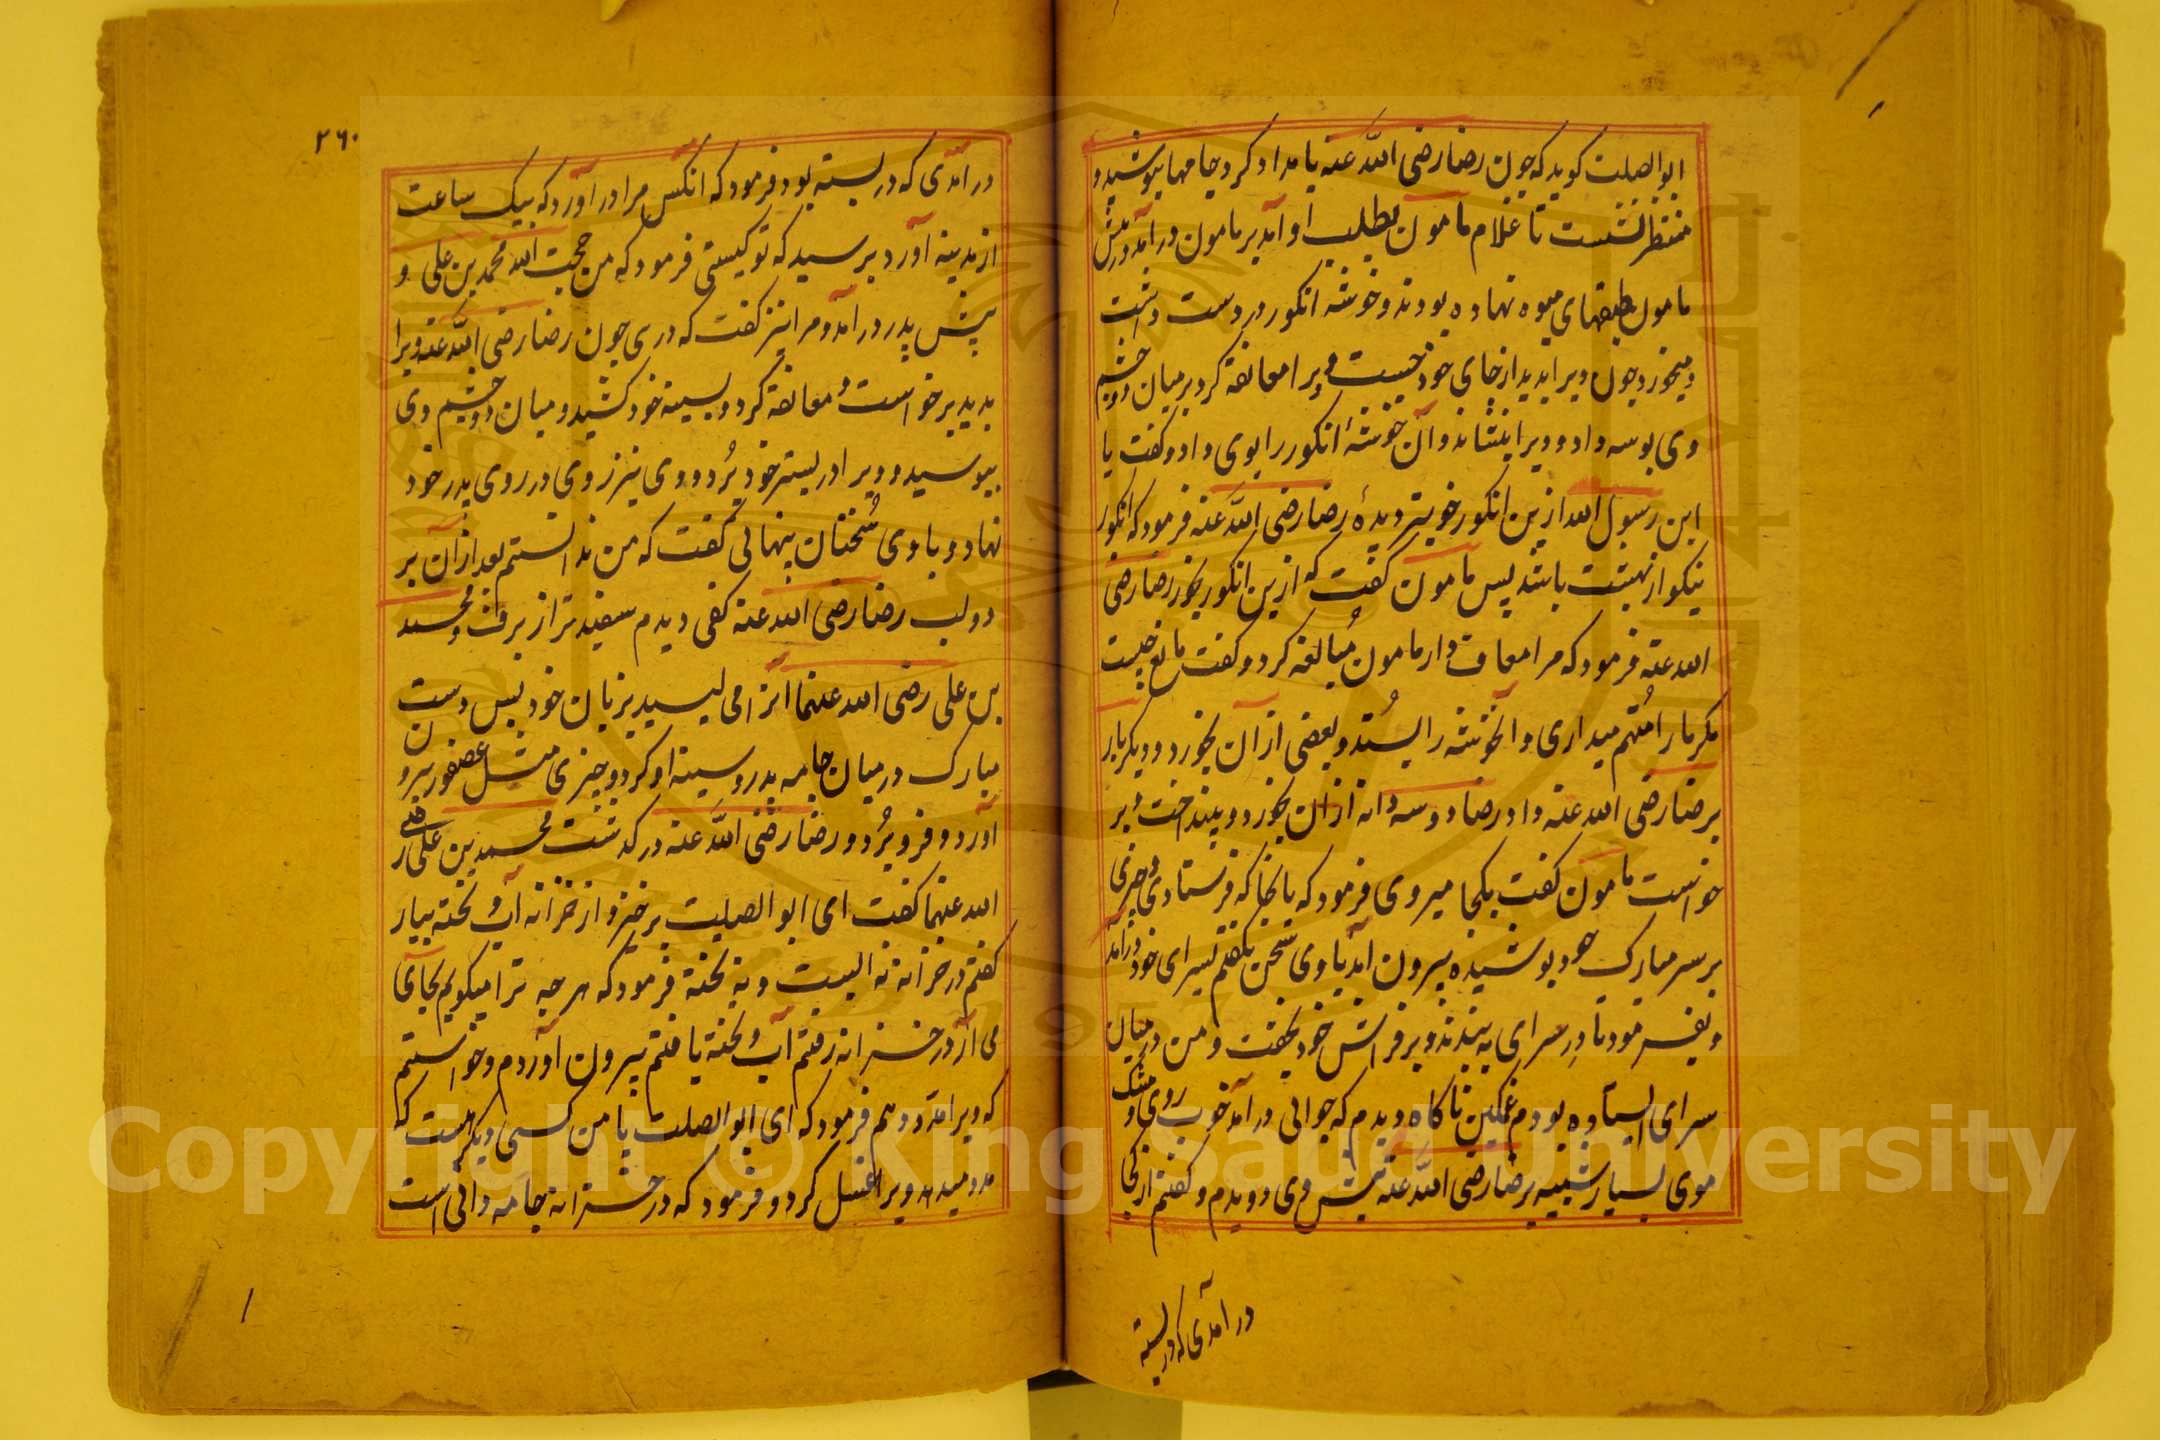 ابو الصلت کوید که چون رضا رضی الله عنه بامداد کرد جامها بپوشید و
منتظر نشست تا غلام مامون بطلب او آمد بر مامون درآمد و در پیش
مامون طبقهای میوه نهاده بودند و خوشه انکور در دست داشت
و میخورد چون ویرا بدید از جای خود جست و ویرا معانقه کرد بر میان دو چشم
وی بوسه داد و ویرا بنشاند و آن خوشهٔ انکور را بوی داد و کفت یا
ابن رسول الله ازین انکور خوبتر دیدهٔ رضا رضی الله عنه فرمود که انکور
نیکو از بهشت باشد پس مامون کفت که ازین انکور بخور رضا رضی
الله عنه فرمود که مرا معاف دار مامون مُبالغه کرد و کفت مانع چیست
مکر ما را مُتهم میداری و آنخوشه را بستُد و بعضی از ان بخورد و دیکر بار
بر رضا رضی الله عنه داد رضا دو سه دانه از ان بخورد و بینداخت و بر
خواست مامون کفت بکجا میروی فرمود که بانجا که فرستادی و چیزی
بر سر مبارک خود پوشیده بیرون امد با وی سخن نکفتم بسرای خود درآمد
و بفرمود تا درِ سرای به بندند و بر فراش خود بخفت و من در میان
سرای ایستاده بودم غمکین ناکاه دیدم که جوانی درآمد خوب روی و مشک
موی بسیار شبیه برضا رضی الله عنه پیش وی دویدم و کفتم از کجا
در آمدی که در بسته
٢٦٠
در آمدی که در بسته بود فرمود که انکس مرا در آورد که بیک ساعت
از مدینه آورد پرسید که تو کیستی فرمود که من حجت الله محمد بن علی و
پیش پدر درآمد و مرا نیز کفت که در ی چون رضا رضی الله عنه ویرا
بدید برخواست و معانقه کرد و بسینه خود کشید و میان دو چشم وی
ببوسید و ویرا در بستر خود بُرد و وی نیز روی در روی پدر خود
نهاد و با وی سُخنان پنهانی کفت که من ندانستم بعد از آن بر
دو لب رضا رضی الله عنه کفی دیدم سفید تر از برف و محمد
بن علی رضی الله عنهما آنرا می لیسید بزبان خود پس دست
مبارک در میان جامه پدر و سینه او کرد و چیزی مثل عصفور بیرون
آورد و فرو بُرد و رضا رضی الله عنه درکذشت محمد بن علی رضی
الله عنهما کفت ای ابو الصلیت برخیز و از خزانه آب و تخته بیار
کفتم در خزانه نه ابست و نه تخته فرمود که هر چه ترا میکویم بجای
می آر در خزانه رفتم آب و تخته یافتم بیرون آوردم و خواستم
که ویرا مدد دهم فرمود که ای ابو الصلت با من کسی دیکر هست که
مدد میدهد ویرا غسل کرد و فرمود که در خزانه جامه دانی است
Copyright © King Saud University